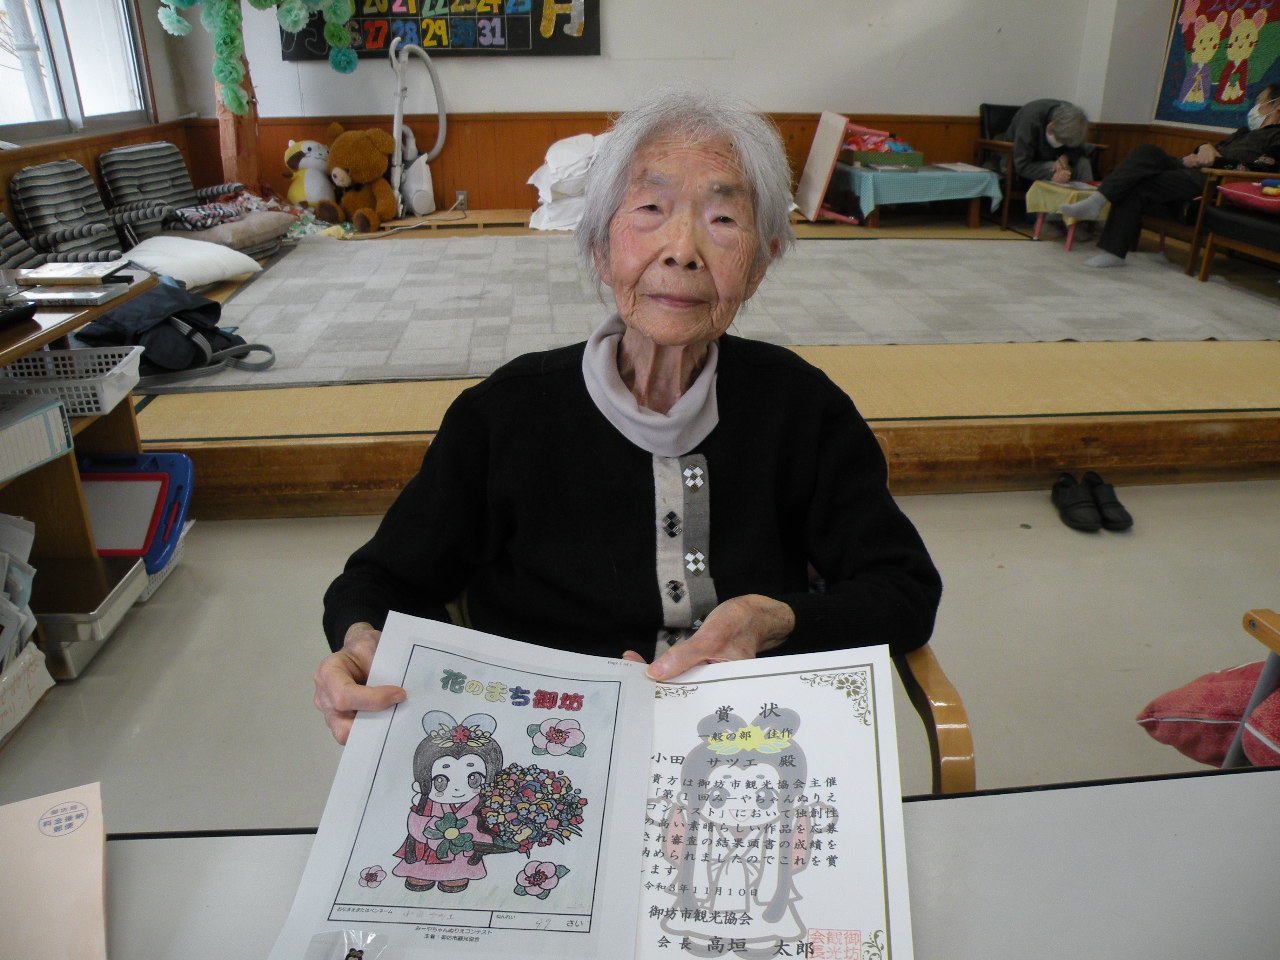 20 21 22 23 24 25
月
27 28 29 30 31
2020
花のまち御坊
みーやちゃんぬりえコンテスト
主催:御坊市観光協会
さい
賞状
一般の部 佳作
小田 サツエ 殿
貴方は御坊市観光協会主催
「第1回みーやちゃんぬりえ
コンテスト」において独創性
の高い素晴らしい作品を応募
され審査の結果頭書の成績を
納められましたのでこれを賞
します
令和3年11月10日
御坊市観光協会
会長 高垣 太郎
御坊
観光
会長
料金後納
郵便